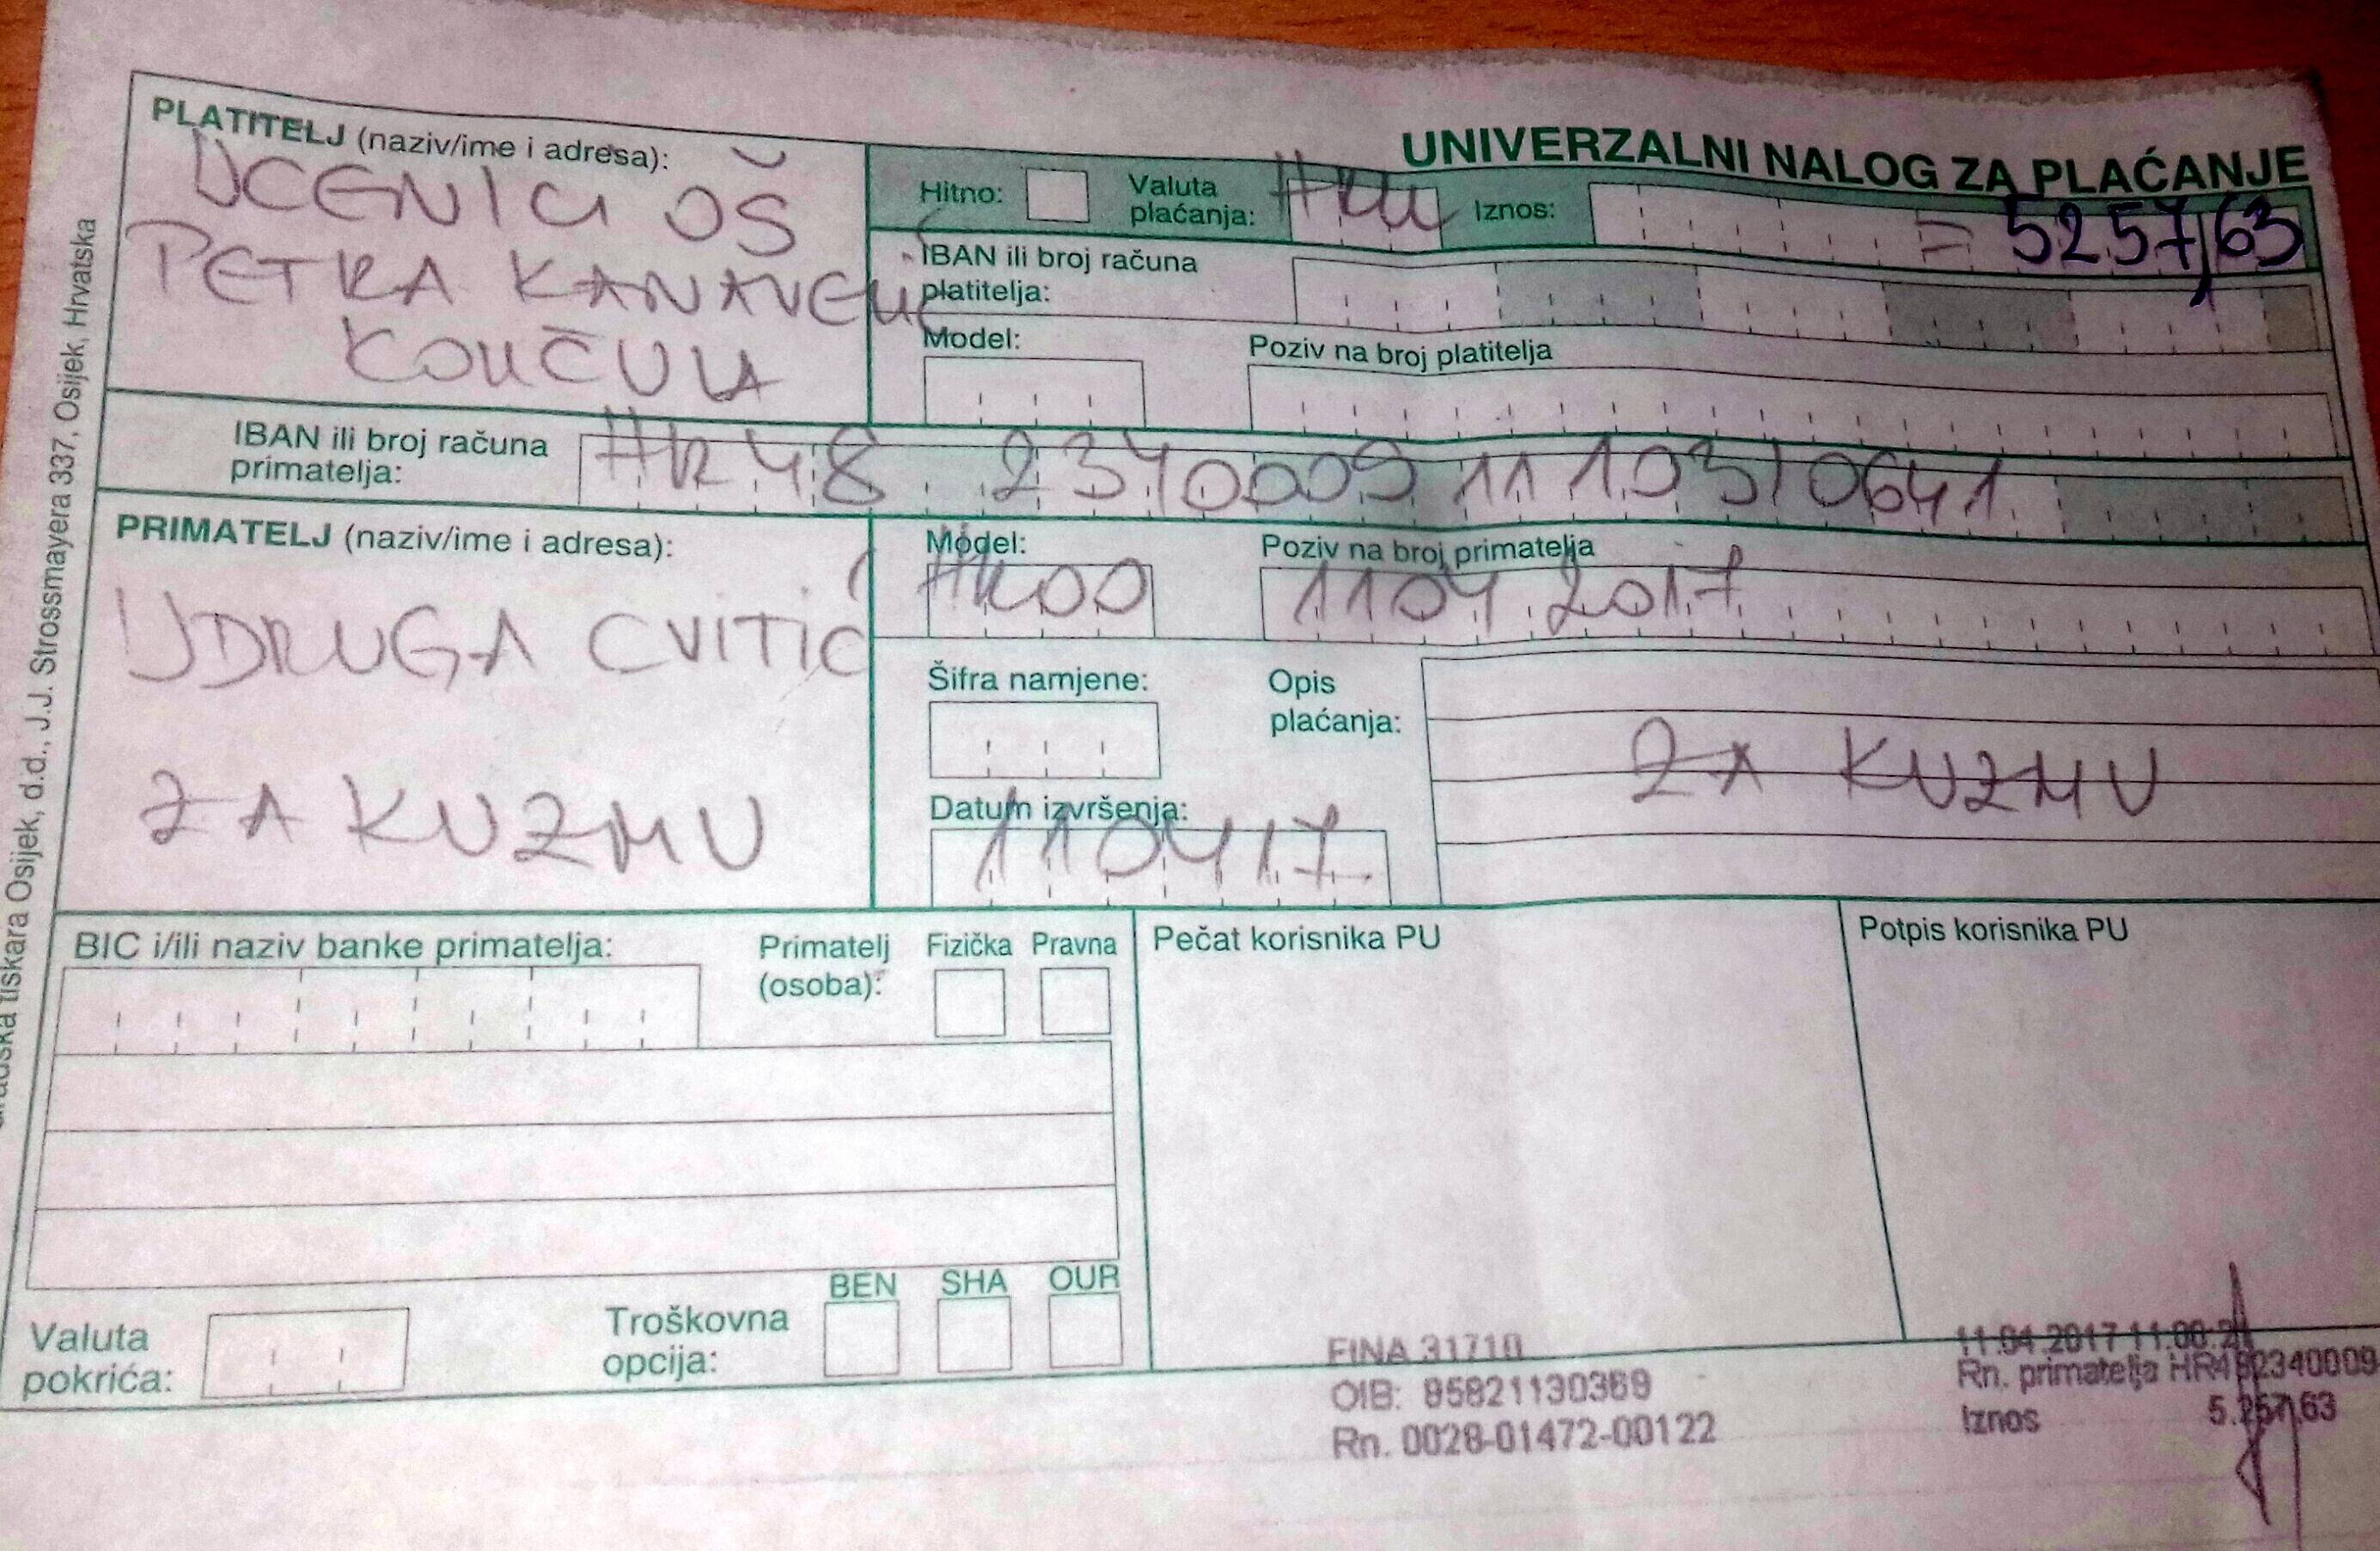 UNIVERZALNI NALOG ZA PLAĆANJE
PLATITELJ (naziv/ime i adresa):
UČENICI OŠ
PETRA KANAVELIĆ
KORČULA
Hitno:
Valuta plaćanja: HRK
Iznos: =5257,63
IBAN ili broj računa platitelja:
Model:
Poziv na broj platitelja
IBAN ili broj računa primatelja: HR48 2340009 1110310641
PRIMATELJ (naziv/ime i adresa):
UDRUGA CVITIĆ
ZA KUZMU
Model: HR00
Poziv na broj primatelja
1104 2017
Šifra namjene:
Opis plaćanja: ZA KUZMU
Datum izvršenja:
110417
BIC i/ili naziv banke primatelja:
Primatelj (osoba): Fizička Pravna
Pečat korisnika PU
Potpis korisnika PU
Valuta pokrića:
Troškovna opcija: BEN SHA OUR
FINA 31710
OIB: 85821130369
Rn. 0028-01472-00122
11.04.2017 11:00:2
Rn. primatelja HR482340009
Iznos 5.257,63
tiskara Osijek, d.d., J.J. Strossmayera 337, Osijek, Hrvatska